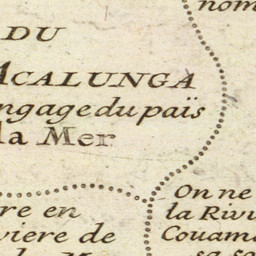 nom
DU
ACALUNGA
ngage du païs
la Mer
On ne
la Rivi
Couama
re en
viere de